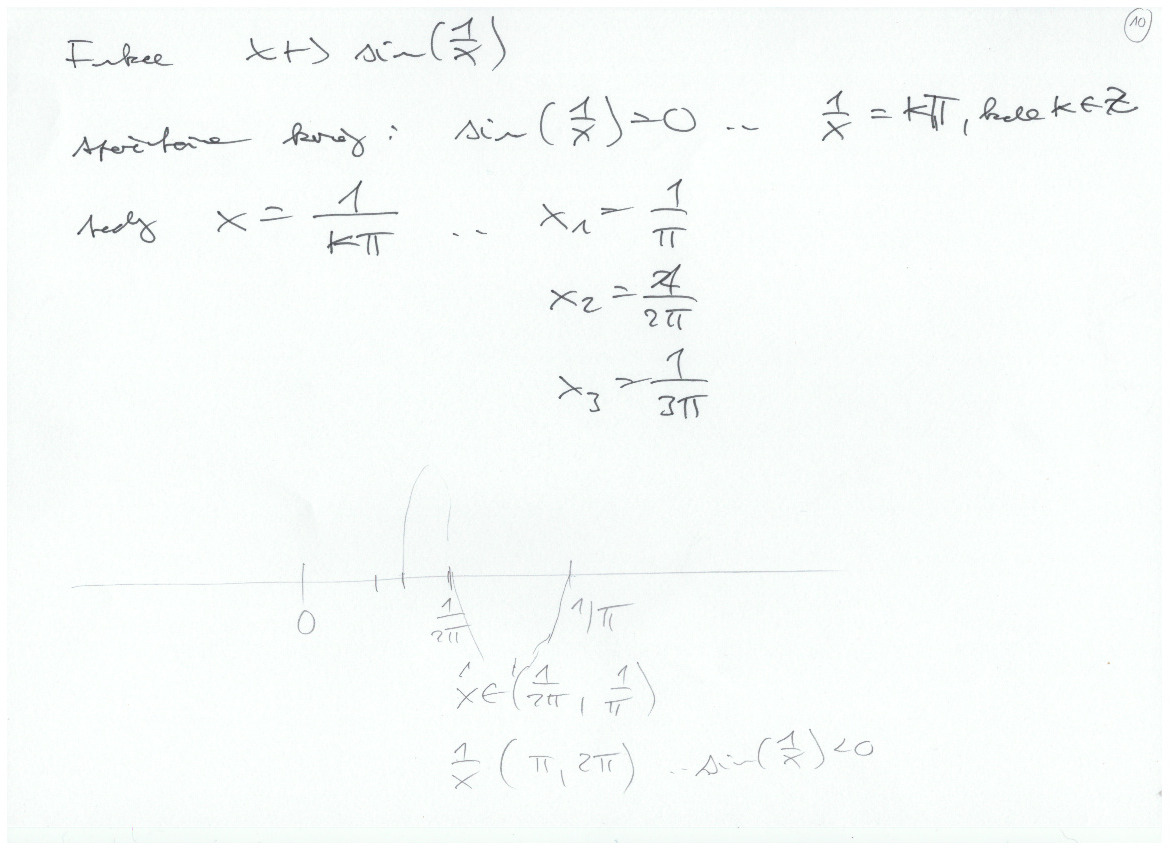 10
Funkce x ↦ sin(1/x)
kořeny: sin(1/x) = 0 .. 1/x = kπ, kde k ∈ Z
tedy x = 1/kπ .. x₁ = 1/π
x₂ = 1/2π
x₃ = 1/3π
0 1/2π 1/π
x ∈ (1/2π, 1/π)
1/x (π, 2π) .. sin(1/x) < 0